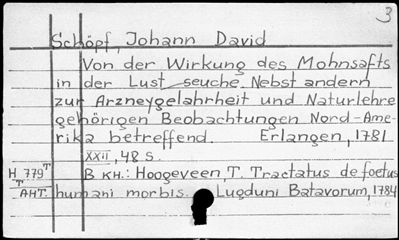 3
Schöpf, Johann David
Von der Wirkung des Mohnsafts
in der Lust-seuche. Nebst andern
zur Arzneygelahrheit und Naturlehre
gehörigen Beobachtungen Nord-Ame-
rika betreffend. Erlangen, 1781
XXII, 48 S.
H 779 T В кн.: Hoogeveen, T. Tractatus de foetus
T АНТ. humani morbis. Lugduni Batavorum, 1784